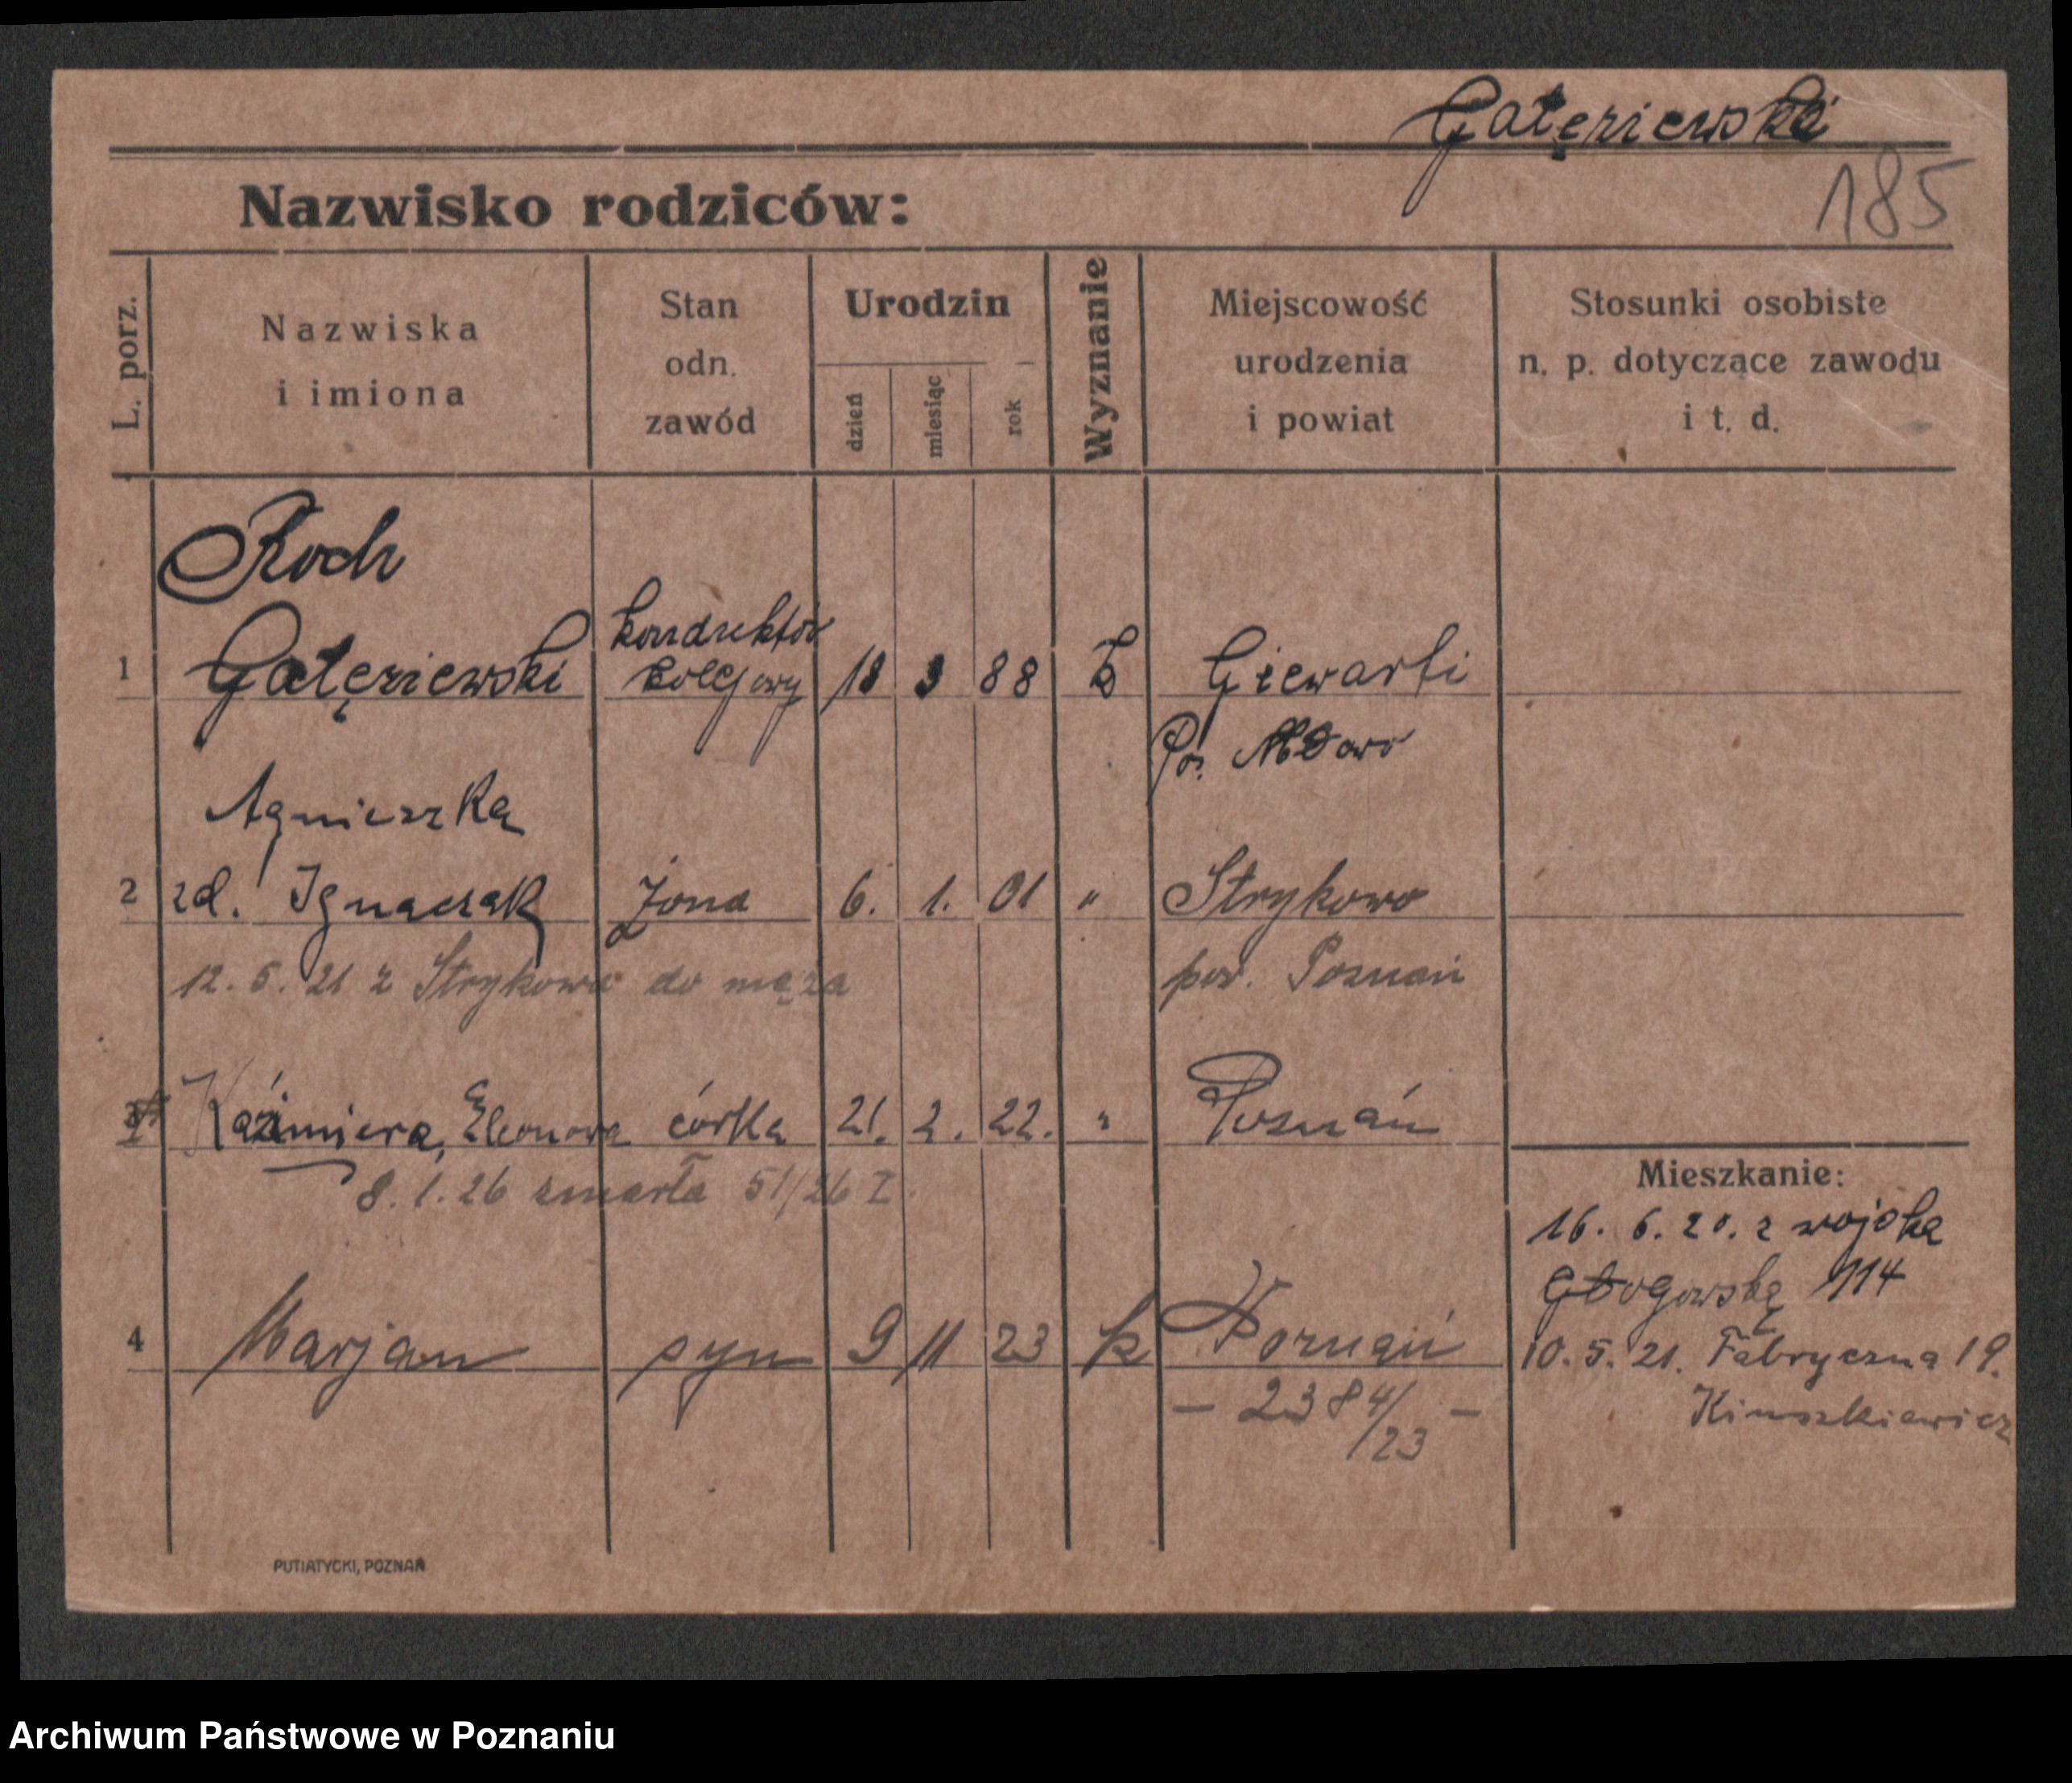 Gałęziewski
185
Nazwisko rodziców:
L. porz.
Nazwiska
i imiona
Stan
odn.
zawód
Urodzin
dzień
miesiąc
rok
Wyznanie
Miejscowość
urodzenia
i powiat
Stosunki osobiste
n. p. dotyczące zawodu
i t. d.
Roch
1 Gałęziewski konduktór kolejowy 18 3 88 k Giewarti
Agnieszka
2 zd. Ignaczak żona 6. 1. 01 " Strykowo
12. 5. 21 z Strykowa do męża pow. Poznań
3 Kaźmiera, Eleonora córka 21. 2. 22. " Poznań
8. 1. 26 zmarła 51/26 I
Mieszkanie:
16. 6. 20. z wojska
Głogowska 114
4 Marjan syn 9 11 23 k Poznań
10. 5. 21. Fabryczna 19.
- 2384/23 -
PUTIATYCKI, POZNAŃ
Archiwum Państwowe w Poznaniu